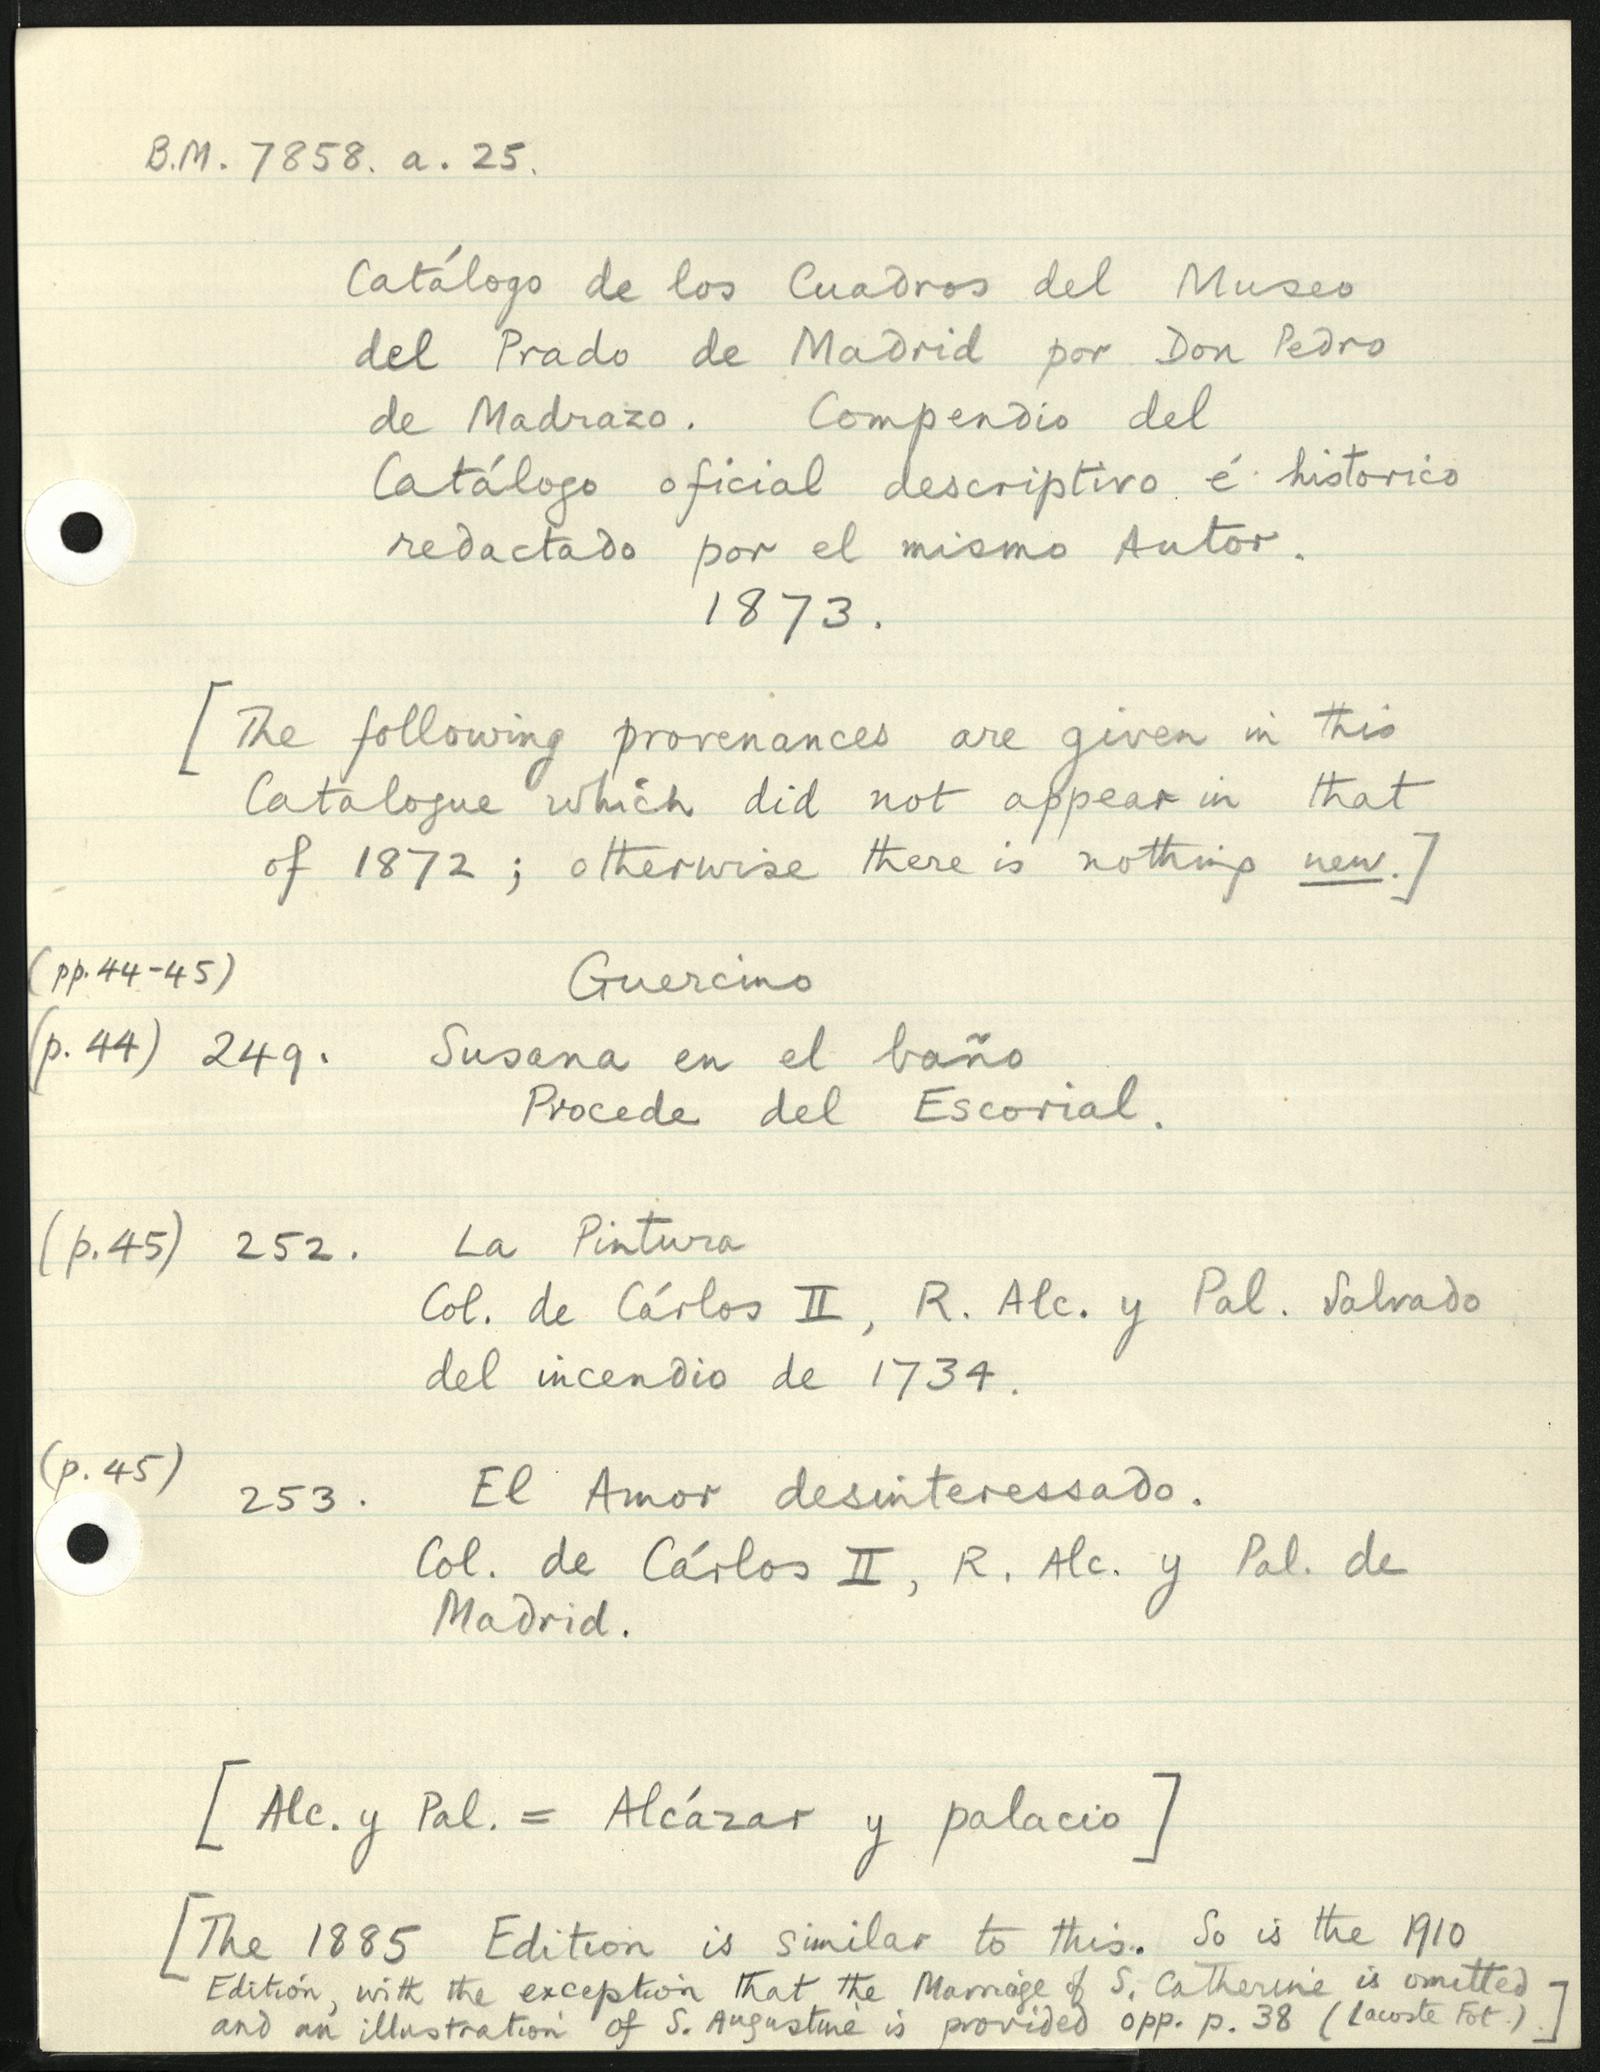 B.M. 7858. a. 25.
Catálogo de los Cuadros del Museo
del Prado de Madrid por Don Pedro
de Madrazo. Compendio del
Catálogo oficial descriptivo é historico
redactado por el mismo Autor.
1873.
[The following provenances are given in this
Catalogue which did not appear in that
of 1872; otherwise there is nothing new.]
(pp. 44-45) Guercino
(p. 44) 249. Susana en el baño
Procede del Escorial.
(p. 45) 252. La Pintura
Col. de Cárlos II, R. Alc. y Pal. Salvado
del incendio de 1734.
(p. 45)
253. El Amor desinteressado.
Col. de Cárlos II, R. Alc. y Pal. de
Madrid.
[Alc. y Pal. = Alcázar y palacio]
[The 1885 Edition is similar to this. So is the 1910
Edition, with the exception that the Marriage of S. Catherine is omitted
and an illustration of S. Augustine is provided opp. p. 38 (Lacoste Fot.).]